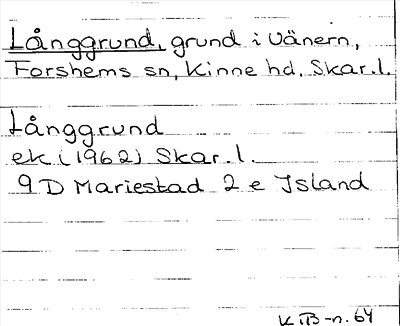 Långgrund, grund i Vänern,
Forshems sn, Kinne hd, Skar.l.
Långgrund
ek (1962) Skar.l.
9D Mariestad 2 e Island
KTB-n. 64